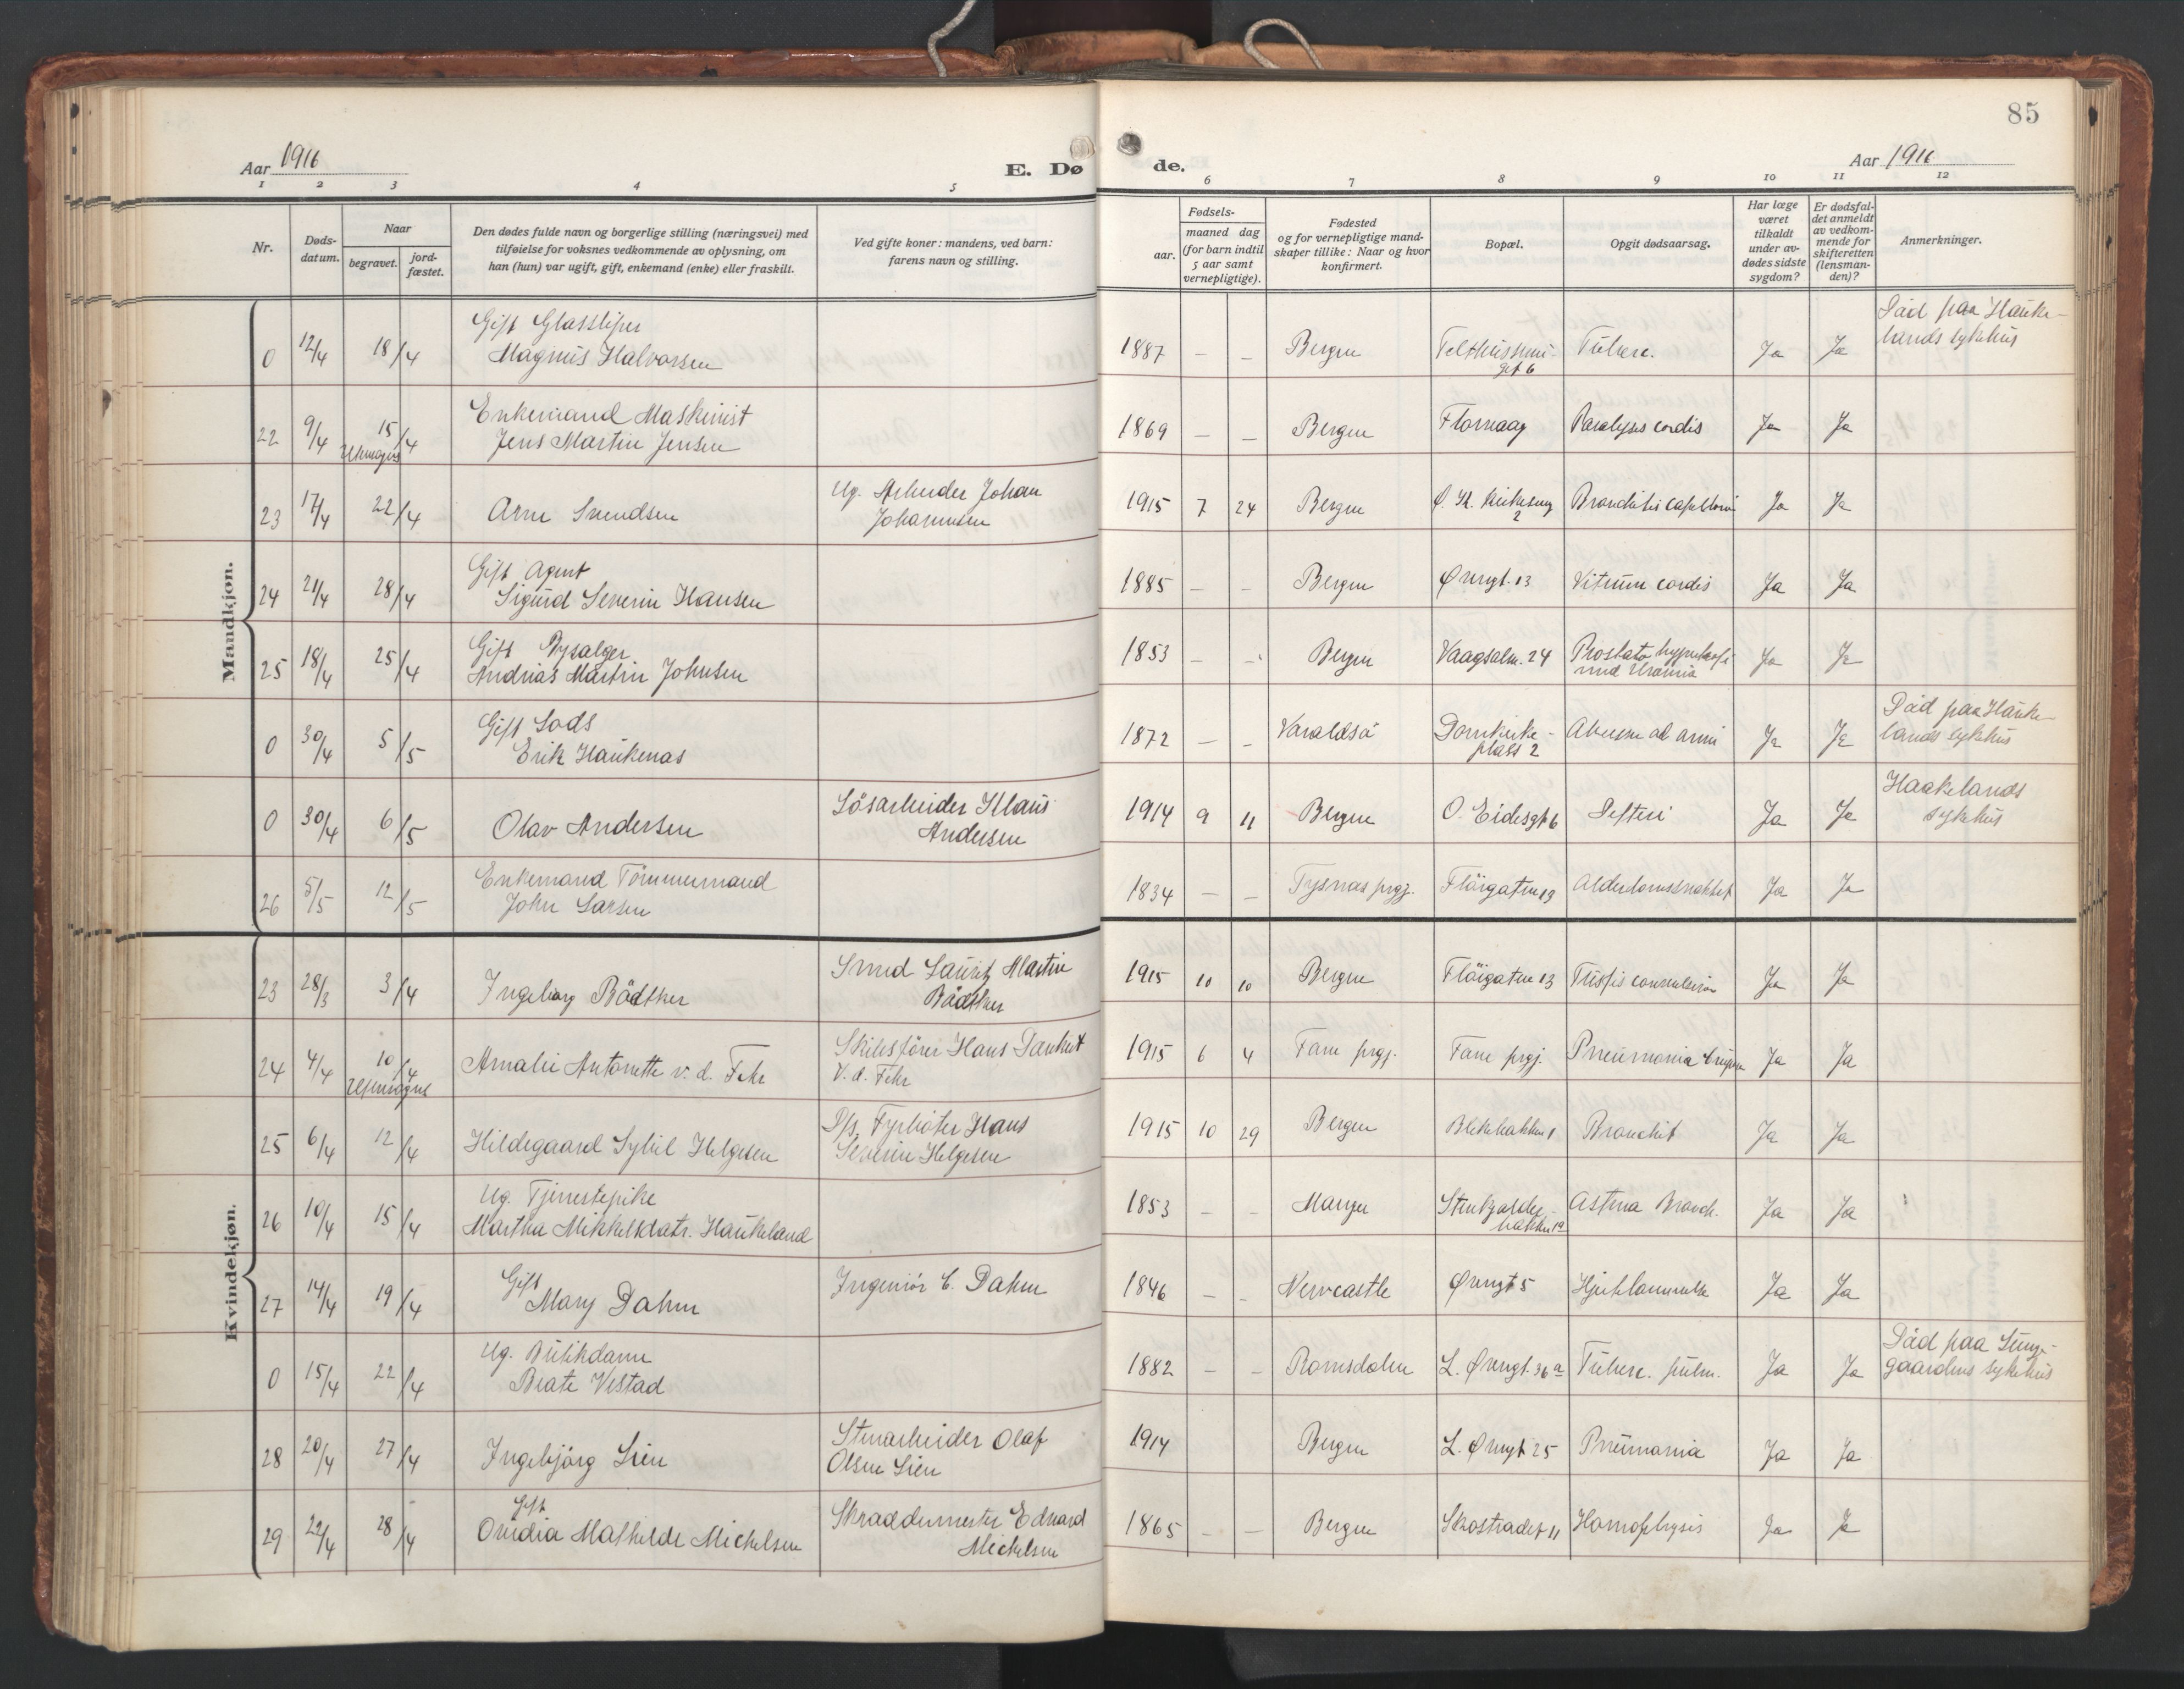 85
Aar 1916
E. Dø
de.
Aar 1916
1 2 3 4 5 6 7 8 9 10 11 12
Nr.
Døds-
datum.
Naar
begravet.
jord-
fæstet.
Den dødes fulde navn og borgerlige stilling (næringsvei) med
tilføielse for voksnes vedkommende av oplysning, om
han (hun) var ugift, gift, enkemand (enke) eller fraskilt.
Ved gifte koner: mandens, ved barn:
farens navn og stilling.
Fødsels-
aar.
maaned dag
(for barn indtil
5 aar samt
vernepligtige).
Fødested
og for vernepligtige mand-
skaper tillike: Naar og hvor
konfirmert.
Bopæl.
Opgit dødsaarsag.
Har læge
været
tilkaldt
under av-
dødes sidste
sygdom?
Er dødsfal-
det anmeldt
av vedkom-
mende for
skifteretten
(lensman-
den)?
Anmerkninger.
Mandkjøn.
0 12/4 18/4 Gift Glassliper
Magnus Halvorsen
1887 – – Bergen
gt 6
Tuberc. Ja Ja
Død paa Hauke-
lands sykehus
22 9/4 15/4 Enkemand Maskinist
Jens Martin Jensen
1869 – – Bergen Florvaag Paralysis cordis Ja Ja
23 17/4 22/4 Arne Svendsen
Ug. Arbeider Johan
Johannesen
1915 7 24 Bergen
2
Ja Ja
24 21/4 28/4 Gift Agent
Sigurd Severin Hansen
1885 – – Bergen Øvregt. 13 Vitium cordis Ja Ja
25 18/4 25/4 Gift Bysælger
Andreas Martin Johnsen
1853 – – Bergen Vaagsalm. 24 Prostata hypertrofi
med Uræmia Ja Ja
0 30/4 5/5 Gift Lods
Erik Haukenæs
1872 – – Varaldsø Domkirke-
plass 2
Ja Ja
Død paa Hauke-
lands sykehus
0 30/4 6/5 Olav Andersen
Løsarbeider Klaus
Andersen
1914 9 11 Bergen O. Eidesgt 6 Difteri Ja Ja
Haukelands
sykehus
26 5/5 12/5 Enkemand Tømmermand
John Larsen
1834 – – Tysnæs prgj. Fløigaten 13 Alderdomssvakhet Ja Ja
Kvindekjøn.
23 28/3 3/4 Ingeborg Bødtker
Smed Lauritz Martin
Bødtker
1915 10 10 Bergen Fløigaten 13 Tussis convulsiva Ja Ja
24 4/4 10/4 Amalie Antonette v. d. Fehr
Skibsfører Hans Dankert
v. d. Fehr
1915 6 4 Fane prgj. Fane prgj. Pneumonia Ja Ja
25 6/4 12/4 Hildegaard Sybil Helgesen
D/s. Fyrbøter Hans
Severin Helgesen
1915 10 29 Bergen Blekebakken 1 Bronchit Ja Ja
26 10/4 15/4 Ug. Tjenestepike
Martha Mikkelsdatr. Haukeland
1853 – – Manger Stenkjælder-
bakken 19
Astma Bronch. Ja Ja
27 14/4 19/4 Gift
Mary Dahm
Ingeniør C. Dahm
1846 – – Newcastle Øvregt 5 Hjertelammelse Ja Ja
0 15/4 22/4 Ug. Butikdame
Beate Vestad
1882 – – Romsdalen L. Øvregt. 36 a Tuberc. pulm. Ja Ja
Død paa Lunge-
gaardens sykehus
28 20/4 27/4 Ingebjørg Lien
Stenarbeider Olaf
Olsen Lien
1914 Bergen L. Øvregt 25 Pneumonia Ja Ja
29 22/4 28/4 Gift
Ovidia Mathilde Michelsen
Skræddermester Edvard
Michelsen
1865 – – Bergen Skostrædet 11 Hæmoptysis Ja Ja